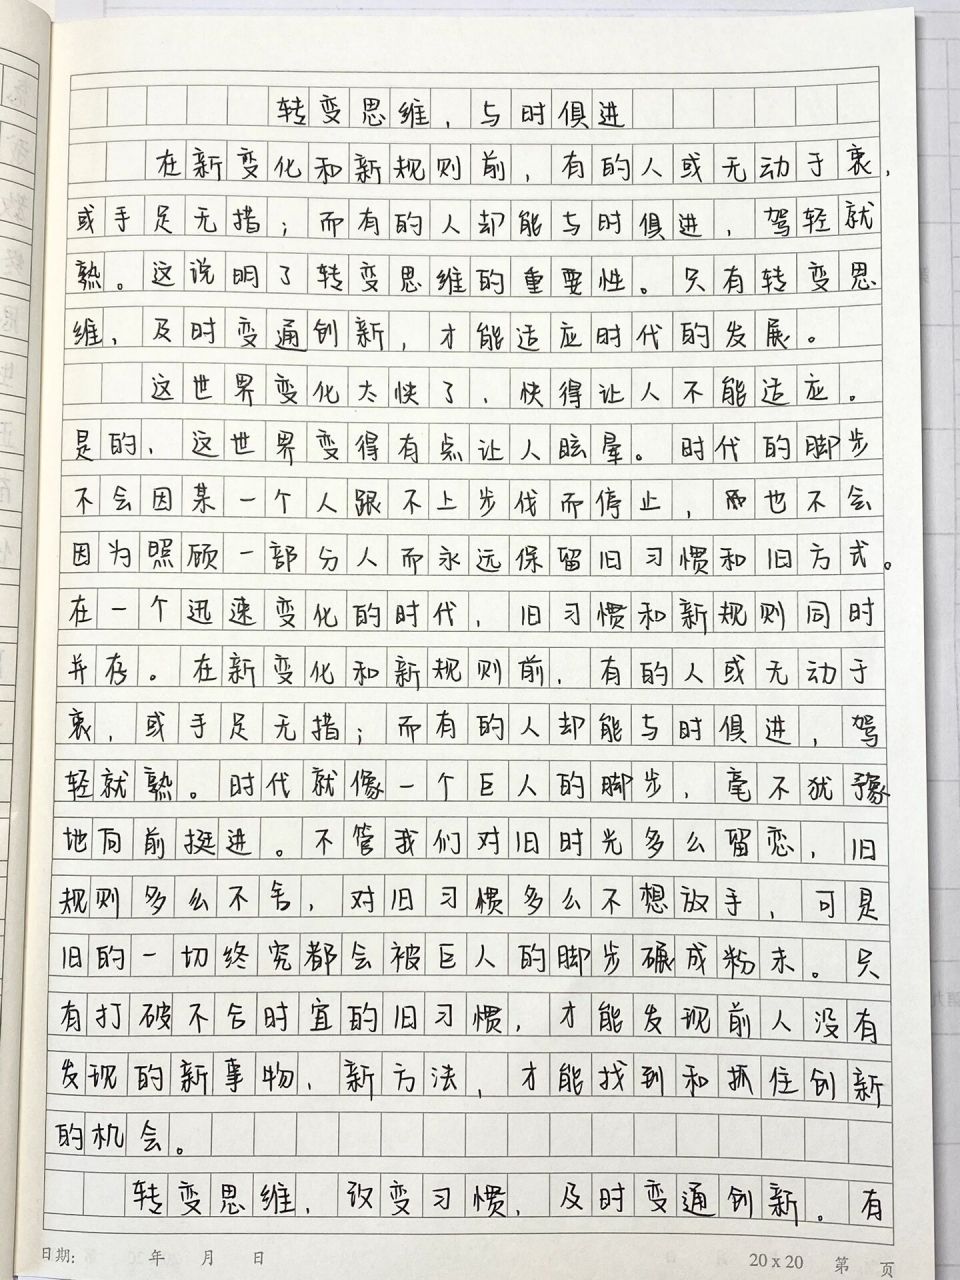 转变思维，与时俱进
在新变化和新规则前，有的人或无动于衷，
或手足无措；而有的人却能与时俱进，驾轻就
熟。这说明了转变思维的重要性。只有转变思
维，及时变通创新，才能适应时代的发展。
这世界变化太快了，快得让人不能适应。
是的，这世界变得有点让人眩晕。时代的脚步
不会因某一个人跟不上步伐而停止，而也不会
因为照顾一部分人而永远保留旧习惯和旧方式。
在一个迅速变化的时代，旧习惯和新规则同时
并存。在新变化和新规则前，有的人或无动于
衷，或手足无措；而有的人却能与时俱进，驾
轻就熟。时代就像一个巨人的脚步，毫不犹豫
地向前挺进。不管我们对旧时光多么留恋，旧
规则多么不舍，对旧习惯多么不想放手，可是
旧的一切终究都会被巨人的脚步碾成粉末。只
有打破不合时宜的旧习惯，才能发现前人没有
发现的新事物、新方法，才能找到和抓住创新
的机会。
转变思维，改变习惯，及时变通创新。有
日期: 年 月 日 20 x 20 第 页